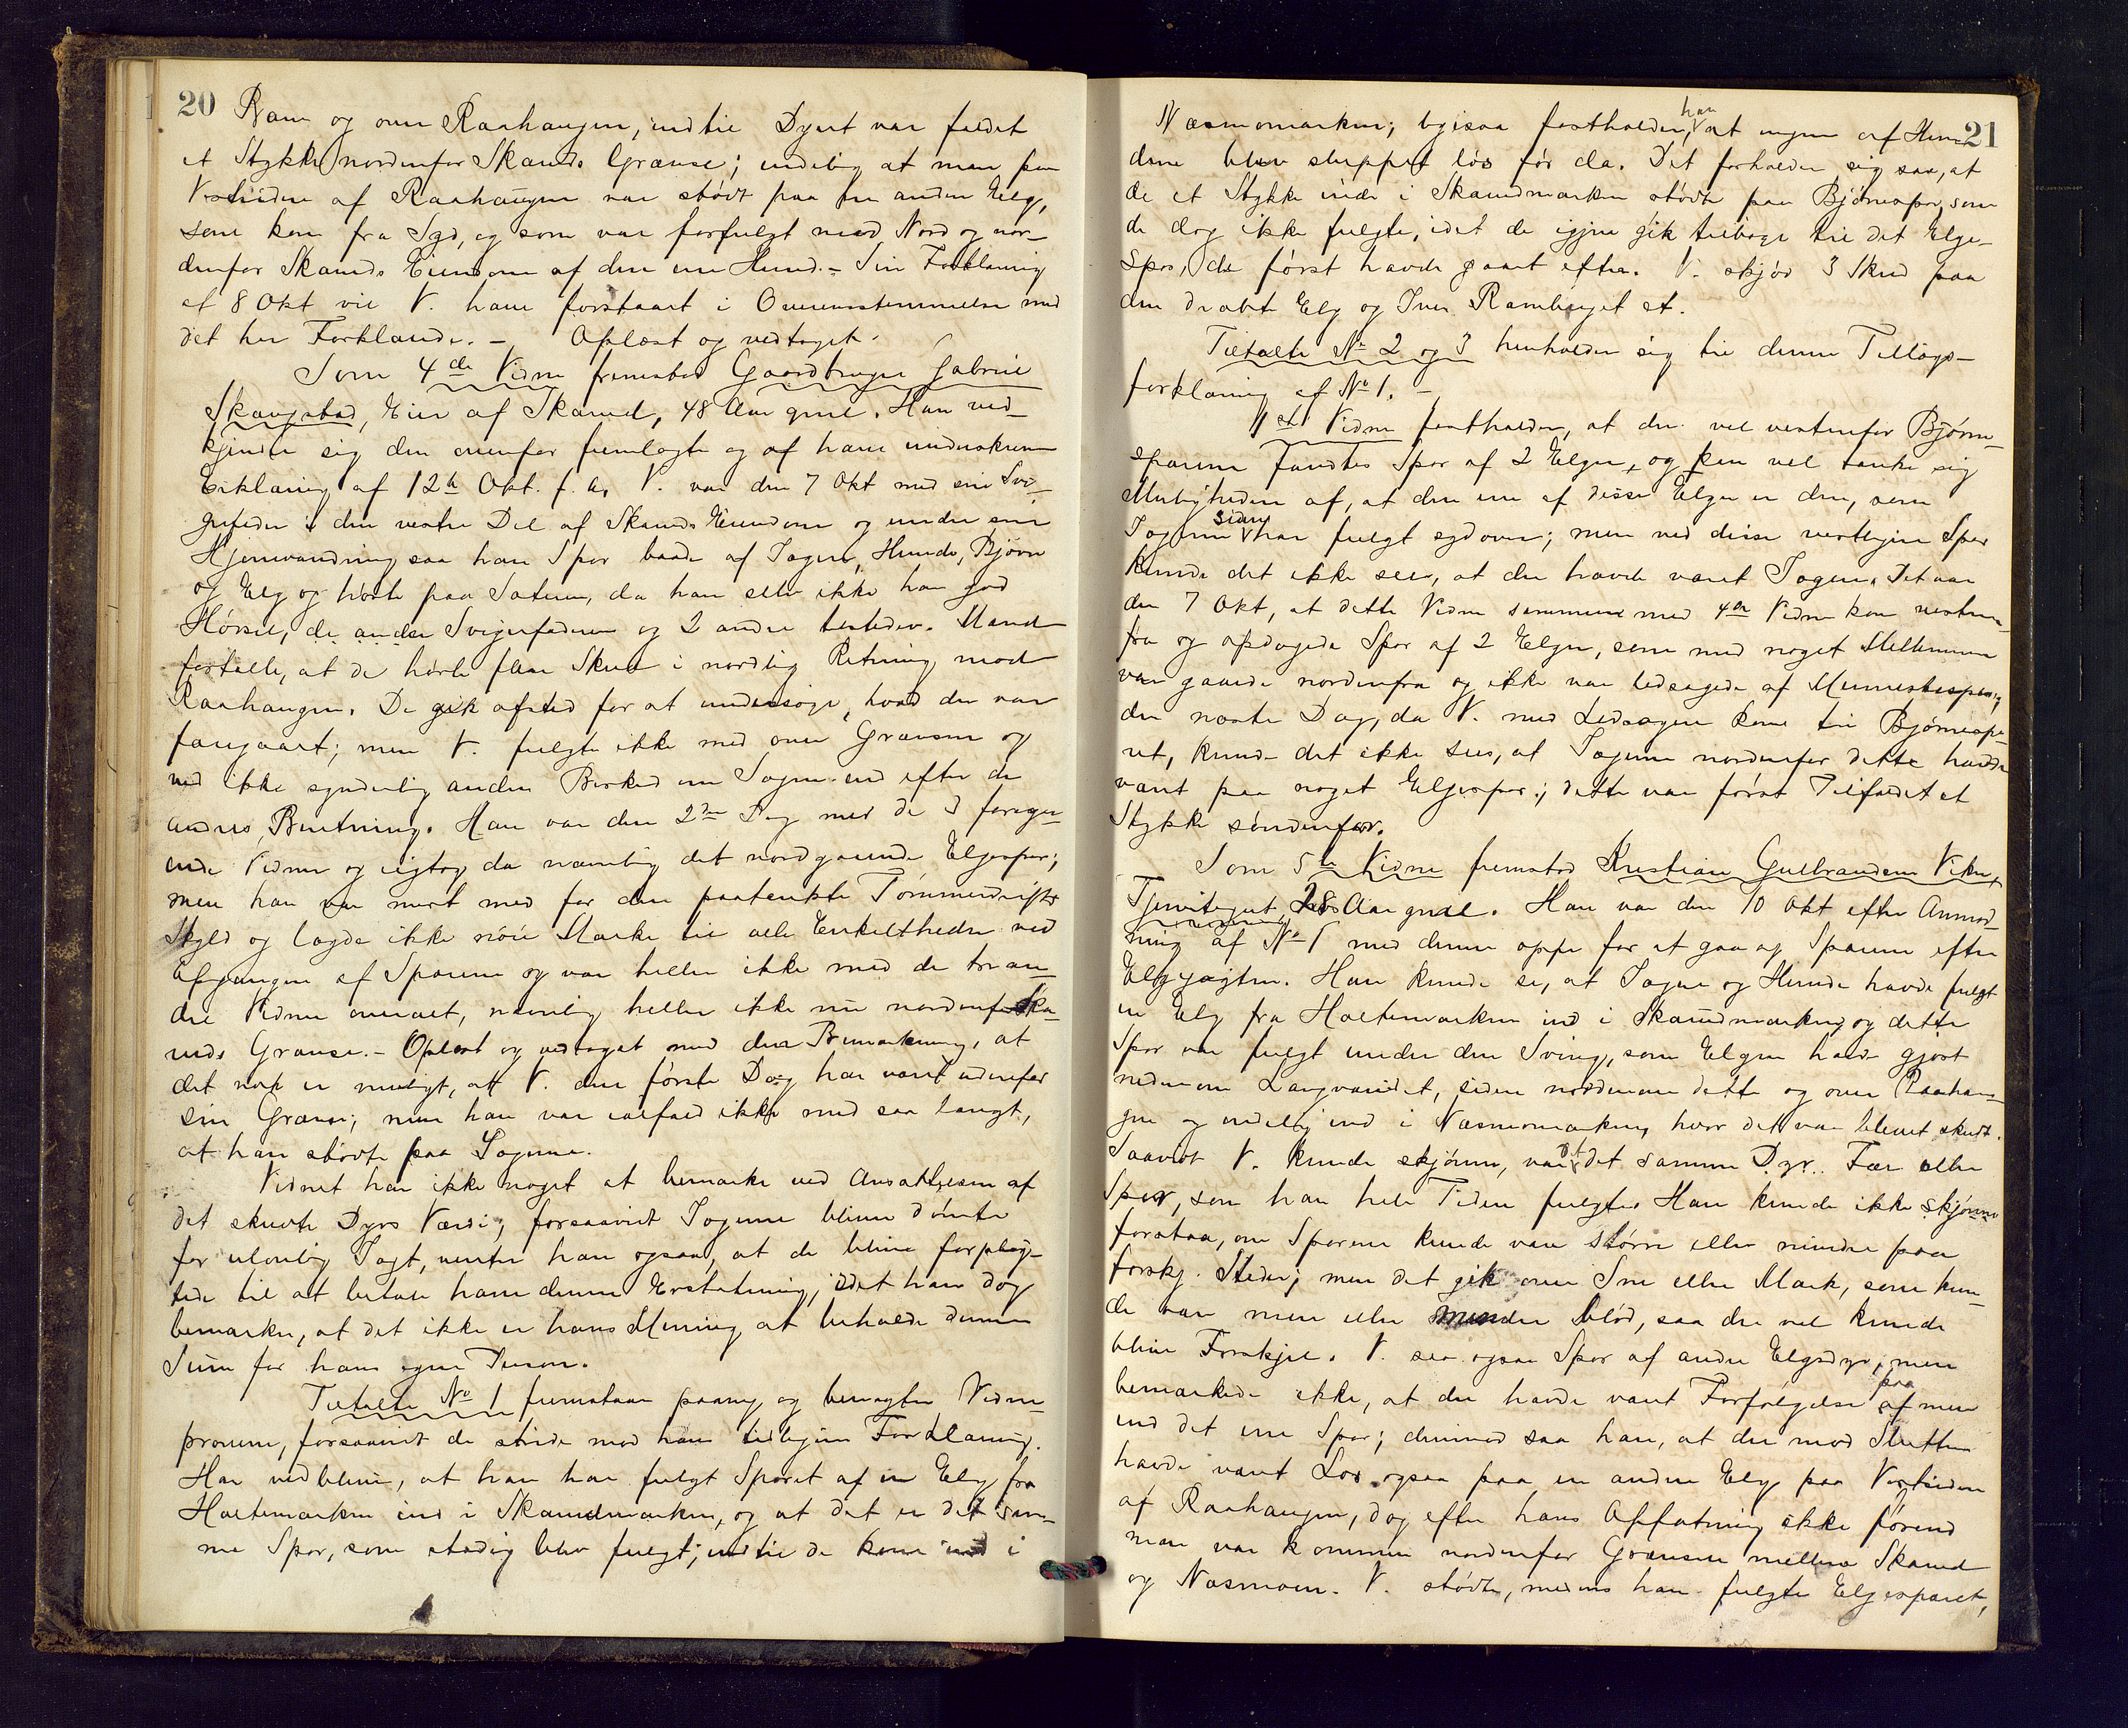 20
Ram og over Raahaugen, indtil Dyret var faldet
et Stykke nordenfor Skauds Grænse; endelig at man paa
Vestsiden af Raahaugen var stødt paa en anden Elg,
som kom fra Syd, og som var forfulgt mod Nord og nor-
denfor Skauds Eiendom af den ene Hund. - Sin Forklaring
af 8 Okt vil V. have forstaaet i Overensstemmelse med
det her Forklarede. - Oplæst og vedtaget.
Som 4de Vidne fremstod Gaardbruger Gabriel
Skavgstad, Eier af Skaud, 48 Aar gml. Han ved-
kjender sig den ovenfor fremlagte og af ham underskrevne
Erklæring af 12te Okt. f. A. V. var den 7 Okt med sin Svi-
gerfader i den vestre Del af Skauds Eiendom og under sin
Hjemvandring saa han Spor baade af Jægere, Hunde, Bjørn
og Elg og hørte paa Sæteren, da han selv ikke har god
Hørsel, de andre Svigerfaderen og 2 andre tilstedev. Mænd
fortælle, at de hørte flere Skud i nordlig Retning mod
Raahaugen. De gik afsted for at undersøge, hvad der var
foregaaet; men V. fulgte ikke med over Grænsen og
ved ikke synderlig anden Besked om Jagten end efter de
andres Beretning. Han var den 2den Dag med de 3 foregaa-
ende Vidner og iagtog da nævnlig det nordgaaende Elgespor;
men han var mest med for den paatænkte Tømmerdrifts
Skyld og lagde ikke nøie Mærke til alle Enkeltheder ved
Opgangen af Sporene og var heller ikke med de tre an-
dre Vidner overalt, nævnlig heller ikke nu nordenfor Ska-
uds Grænse. - Oplæst og vedtaget med den Bemærkning, at
det nok er muligt, at V. den første Dag har været udenfor
sin Grænse; men han var ialfald ikke med saa langt,
at han stødte paa Jægerne.
Vidnet har ikke noget at bemærke ved Ansættelsen af
det skudte Dyrs Værdi; forsaavidt Jægerne bliver dømte
for ulovlig Jagt, venter han ogsaa, at de blive forplig-
tede til at betale ham denne Erstatning, idet han dog
bemærker, at det ikke er hans Mening at beholde denne
Sum for hans egen Person.
Tiltalte No 1 fremstaar paany og benægter Vidne-
provene, forsaavidt de stride mod hans tidligere Forklaring.
Han vedbliver, at han har fulgt Sporet af en Elg fra
Holtemarken ind i Skaudmarken, og at det er det sam-
me Spor, som stadig blev fulgt, indtil de kom ind i
21
Næsmomarken; ligesaa fastholder han, at ingen af Hun-
dene blev sluppet løs før da. Det forholder sig saa, at
de et Stykke inde i Skaudmarken stødte paa Bjørnespor, som
de dog ikke fulgte, idet de igjen gik tilbage til det Elge-
spor, de først havde gaaet efter. V. skjød 3 Skud paa
den dræbte Elg og Iver Ramberget et.
Tiltalte No 2 og 3 henholder sig til denne Tillægs-
forklaring af No 1. -
1ste Vidne fastholder, at der vel vestenfor Bjørne-
sporene fandtes Spor af 2 Elger, og kan vel tænke sig
Muligheden af, at den ene af disse Elger er den, som
Jægerne siden har fulgt sydover; men ved disse vestligere Spor
kunde det ikke sees, at der havde været Jægere. Det var
den 7 Okt, at dette Vidne sammen med 4de Vidne kom vesten-
fra og opdagede Spor af 2 Elger, som med noget Mellemrum
var gaaede nordenfra og ikke var ledsagede af Menneskespor;
den næste Dag, da V. med Ledsagere kom til Bjørnespo-
ret, kunde det ikke sees, at Jægerne nordenfor dette havde
været paa noget Elgespor; dette var først Tilfældet et
Stykke søndenfor.
Som 5te Vidne fremstod Kristian Gulbrandsen Viker,
Tjenstegut, 28 Aar gml. Han var den 10 Okt efter Anmod-
ning af No 1 med denne oppe for at gaa op Sporene efter
Elgjagten. Han kunde se, at Jægere og Hunde havde fulgt
en Elg fra Holtemarken ind i Skaudmarken, og dette
Spor var fulgt under den Sving, som Elgen havde gjort
nedenom Langvandet, siden nordenom dette og over Raahau-
gen og endelig ind i Næsmomarken, hvor det var blevet skudt.
Saavidt V. kunde skjønne, var det det samme Dyrs Fær eller
Spor, som han hele Tiden fulgte. Han kunde ikke skjønne
forstaa, om Sporene kunde være større eller mindre paa
forskj. Steder; men det gik over Sne eller Mark, som kun-
de være mere eller mindre blød, saa der vel kunde
blive Forskjel. V. saa ogsaa Spor af andre Elgsdyr, men
bemærkede ikke, at der havde været Forfølgelse paa af mere
end det ene Spor; derimod saa han, at der mod Slutten
havde været Los ogsaa paa en anden Elg paa Vestsiden
af Raahaugen, dog efter hans Opfatning ikke førend
man var kommen nordenfor Grænsen mellem Skaud
og Næsmoen. V. stødte, medens han fulgte Elgesporet,